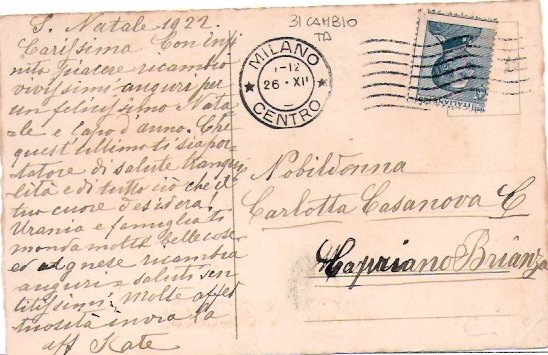 S. Natale 1922
Carissima Con infi
nito piacere ricambio
vivissimi auguri per
un felicissimo Nata
=le e Capo d'anno. Che
quest'ultimo ti sia por
tatore di salute tranqui
lità e di tutto ciò che il
tuo cuore desidera.
Urania e famiglia ti
mandа molte belle cose
ed Agnese ricambia
auguri e saluti sen
titissimi. Molte affet
tuosità invia la
aff Kate
31 CAMBIO
TA
MILANO
26 · XII
CENTRO
Nobildonna
Carlotta Casanova C
Capriano Brianza